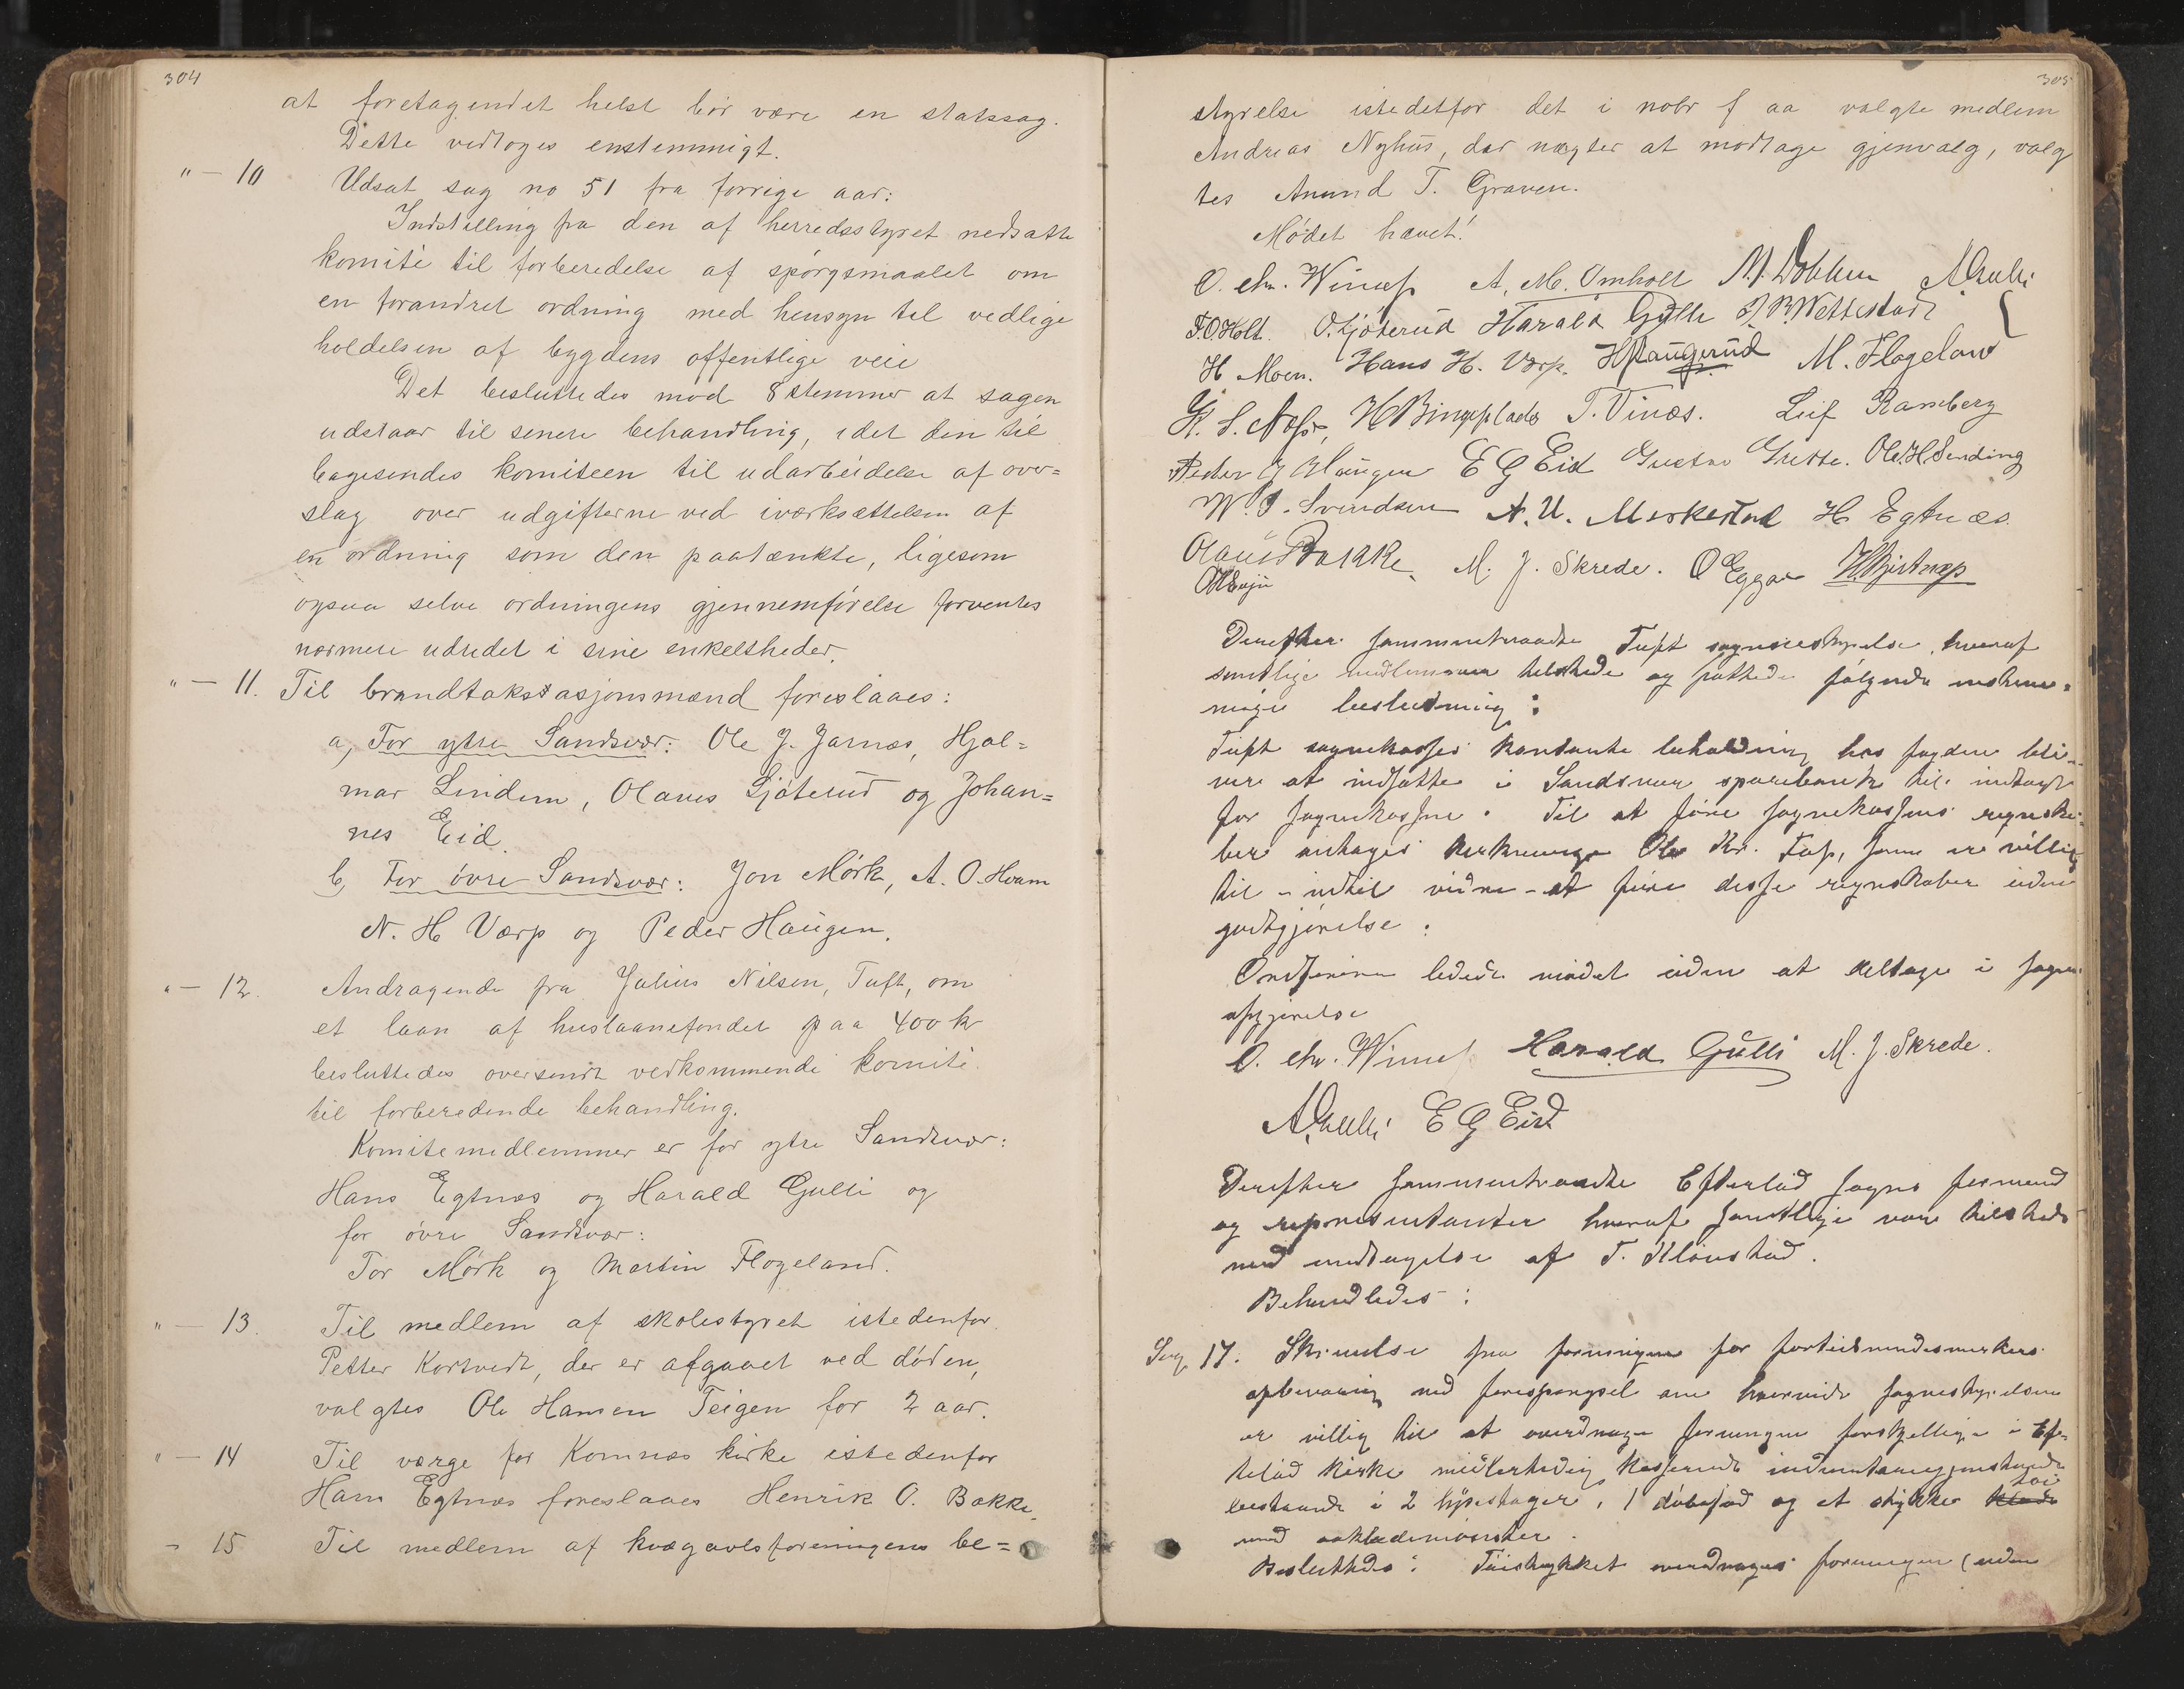 304
at foretagendet helst bør være en statssag.
Dette vedtoges enstemmigt.
"— 10 Udsat sag no 51 fra forrige aar:
Indstilling fra den af herredsstyret nedsatte
komité til forberedelse af spørgsmaalet om
en forandret ordning med hensyn til vedlige
holdelsen af bygdens offentlige veie
Det besluttedes mod 8 stemmer at sagen
udstaar til senere behandling, idet den til
bagesendes komiteen til udarbeidelse af over=
slag over udgifterne ved iværksættelsen af
en ordning som den paatænkte, ligesom
ogsaa selve ordningens gjennemførelse forventes
nærmere udredet i sine enkeltheder.
"— 11. Til brandtakstasjonsmænd foreslaaes:
a, For ytre Sandsvær: Ole J. Jarnæs, Hjal=
mar Lindem, Olaves Gjøterud og Johan=
nes Eid.
b, For øvre Sandsvær: Jon Mørk, A. O. Hvam
N. H Værp og Peder Haugen.
"— 12. Andragende fra Julius Nilsen, Tuft, om
et laan af huslaanefondet paa 400 k
besluttedes oversendt vedkommende komité
til forberedende behandling.
Komitemedlemmer er for ytre Sandsvær:
Hans Egtnæs og Harald Gulli og
for øvre Sandsvær:
Tor Mørk og Martin Flogeland.
"— 13. Til medlem af skolestyret istedenfor
Petter Kortvedt, der er afgaaet ved døden,
valgtes Ole Hansen Teigen for 2 aar.
"— 14 Til værge for Komnæs kirke istedenfor
Hans Egtnæs foreslaaes Henrik O. Bakke.
— 15 Til medlem af kvægavlsforeningens be=
305
styrelse istedetfor det i nobr f aa valgte medlem
Andreas Nyhus, der nægter at modtage gjenvalg, valg
tes Anund T. Graven.
Mødet hævet!
O. Chr. A. M. Omholt A Gulli
T.O.Holt. O. Gjøterud Harald Gulli Wettestad
H Moen. Hans H. Værp. H Haugerud M. Flogeland
T. Vinæs. Leif Ramberg
E G Eid Gustav Grette. Ole H Sending
W. Svendsen A. U. Merkestad H Egtnæs.
Olaus Bakke. M. J. Skrede. O Eggar
Derefter sammentraadte Tuft sognestyrelse, hvoraf
samtlige medlemmer tilstede og fattede følgende enstem=
mige beslutning:
Tuft sognekasses kontante beholdning hos fogden bli=
ver at indsætte i Sandsvær sparebank til indtægt
for sognekassen. Til at føre sognekassens regnska=
ber antages kirkeværge Ole Kr. som er villig
til – indtil videre – at føre disse regnskaber uden
godtgjørelse.
Ordføreren ledede mødet uden at deltage i sagens
afgjørelse
O. Chr. Harald Gulli M. J. Skrede.
A Gulli E G Eid
Derefter sammentraadte Eftelød sogns formænd
og repræsentanter hvoraf samtlige var tilstede
med undtagelse af T. Kloustad.
Behandledes:
Sag 17. Skrivelse fra foreningen for fortidsmindesmerkers
opbevaring med forespørgsel om hvorvidt sognestyrelsen
er villig til at overdrage foreningen forskjellige i Ef=
teløt kirke midlertidig kasserede inventargjenstande
bestaaende i 2 lysestager, 1 døbefad og et stykke klæde tøi
med
Besluttedes: Tøistykket overdrages foreningen (uden